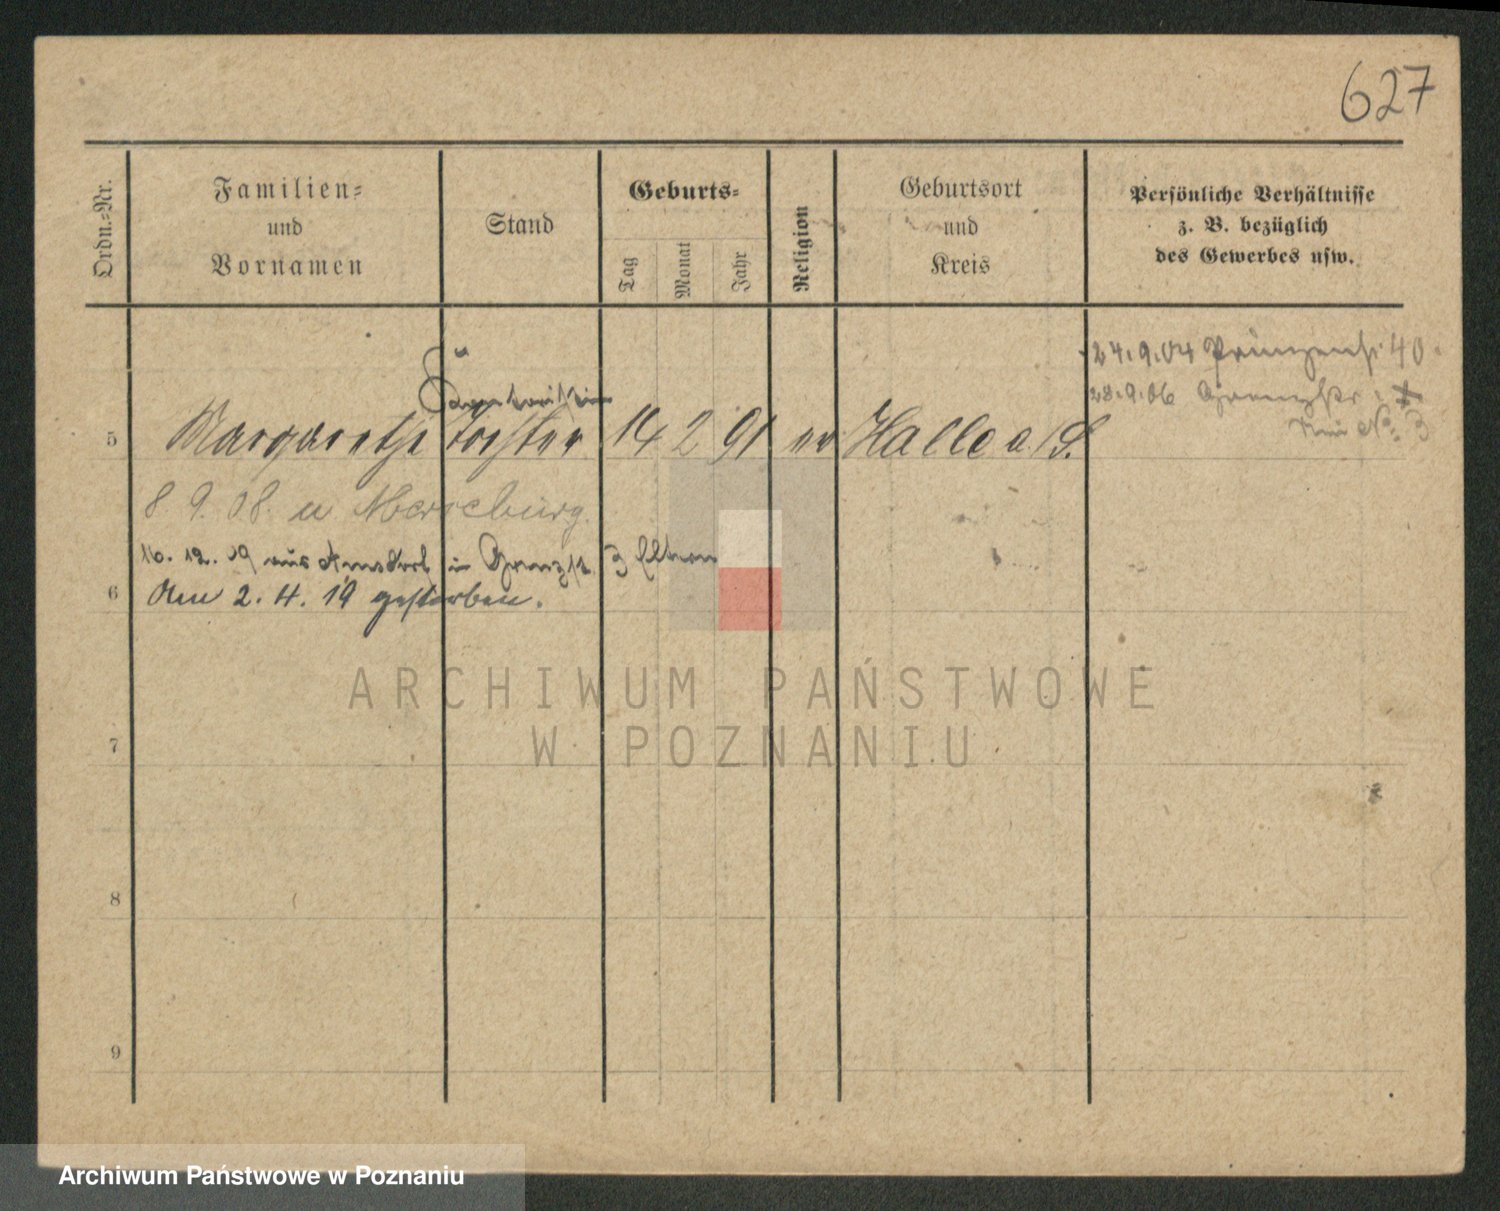 627
Ordn.-Nr.
Familien-
und
Vornamen
Stand
Geburts-
Tag
Monat
Jahr
Religion
Geburtsort
und
Kreis
Persönliche Verhältnisse
z. B. bezüglich
des Gewerbes usw.
24.9.04 Prinzenstr. 40
28.9.06 Grenzstr.
neu No. 3
5 Margarethe Tochter 14 2 91 ev Halle a/S.
8.9.08. n Merseburg.
16.12.09 aus Amsdorf in Grenzstr. 3 Eltern
6 Am 2.4.19 gestorben.
7
8
9
ARCHIWUM PAŃSTWOWE
W POZNANIU
Archiwum Państwowe w Poznaniu